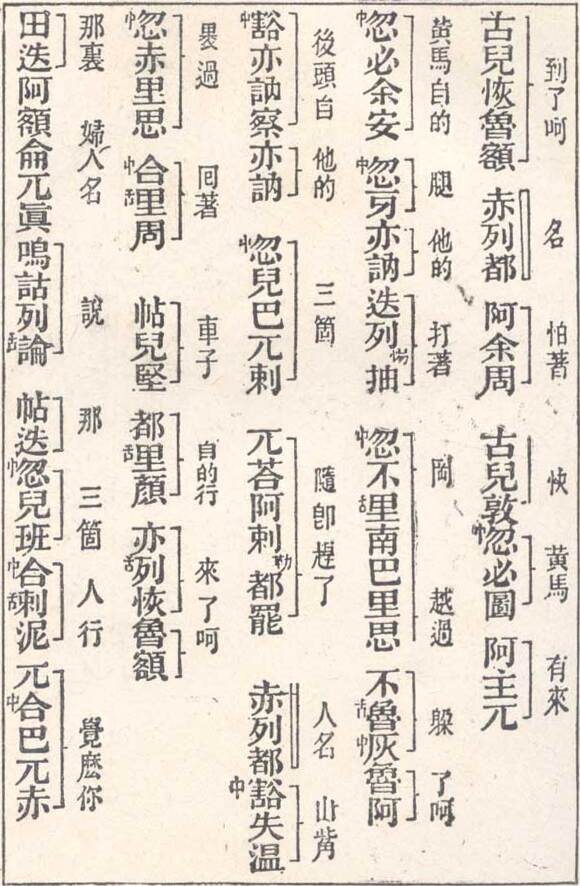 到了呵 名 怕著 快 黃馬 有來
古兒恢魯額 赤列都 阿余周 古兒敦中忽必圖 阿主兀
黃馬自的 腿 他的 打著 岡 越過 躱 了呵
中忽必余安 中忽牙亦訥 迭列惕抽 中忽不舌里南巴里思 不舌魯中灰魯阿
後頭自 他的 三箇 隨卽趕了 人名 山觜
中豁亦訥察亦訥 中忽兒巴兀剌 兀荅阿剌勒都罷 赤列都 中豁失溫
過 回著 車子 自的行 來了呵
中忽赤里思 中合舌里周 帖兒堅 都舌里顏 亦舌列恢魯額
那裏 婦人名 說 那 三箇 人行 覺麽你
田迭阿額侖兀眞 嗚詁列舌論 帖迭中忽兒班 中合舌剌泥 兀中合巴兀赤